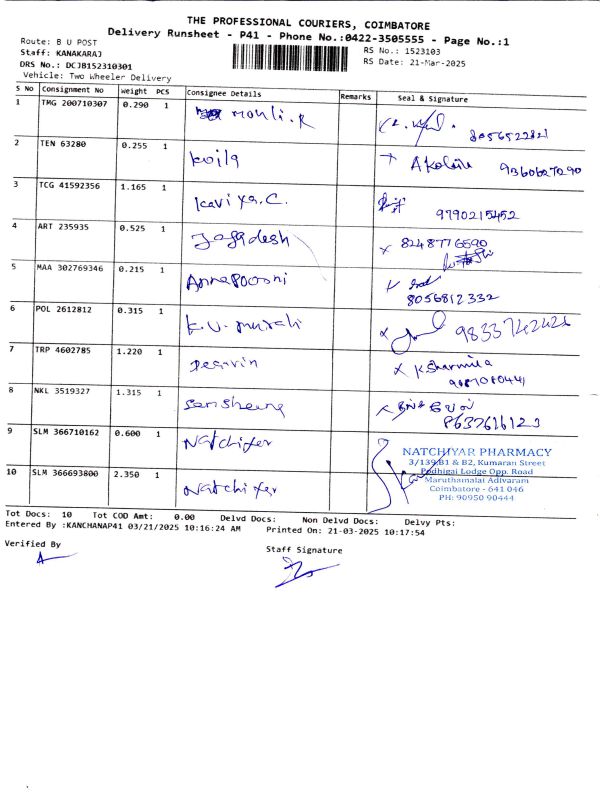 THE PROFESSIONAL COURIERS, COIMBATORE
Delivery Runsheet - P41 - Phone No.:0422-3505555 - Page No.:1
Route: B U POST
RS No.: 1523103
Staff: KANAKARAJ
RS Date: 21-Mar-2025
DRS No.: DCJB152310301
Vehicle: Two Wheeler Delivery
S No Consignment No Weight PCS Consignee Details Remarks Seal & Signature
1 TMG 200710307 0.290 1 mouli.R
8056522821
2 TEN 63280 0.255 1 koila
9360627090
3 TCG 41592356 1.165 1 kaviya.C.
9790215452
4 ART 235935 0.525 1 Jagadesh
8248776590
5 MAA 302769346 0.215 1 Annapoorni
8056812332
6 POL 2612812 0.315 1 K.U. murali
7 TRP 4602785 1.220 1
K Sharmila
8 NKL 3519327 1.315 1
8637616123
9 SLM 366710162 0.600 1 Natchiyer
NATCHIYAR PHARMACY
3/139,B1 & B2, Kumaran Street
Podhigai Lodge Opp. Road
Maruthamalai Adivaram
Coimbatore - 641 046
PH: 90950 90444
10 SLM 366693800 2.350 1 Natchiyer
Tot Docs: 10 Tot COD Amt: 0.00 Delvd Docs: Non Delvd Docs: Delvy Pts:
Entered By :KANCHANAP41 03/21/2025 10:16:24 AM Printed On: 21-03-2025 10:17:54
Verified By
Staff Signature